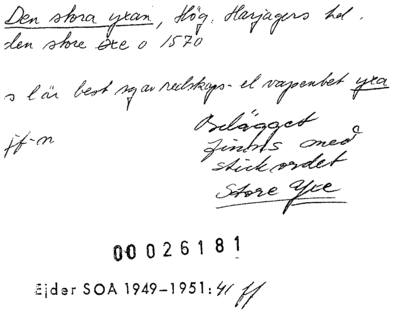 Den stora yxan, Hög, Harjagers hd.
den store øxe o 1570
s lär best sg av redskaps- el vapenbet yxa
jf-n
Belägget
finns med
stickordet
Store Yxe
00026181
Ejder SOA 1949-1951:41 ff